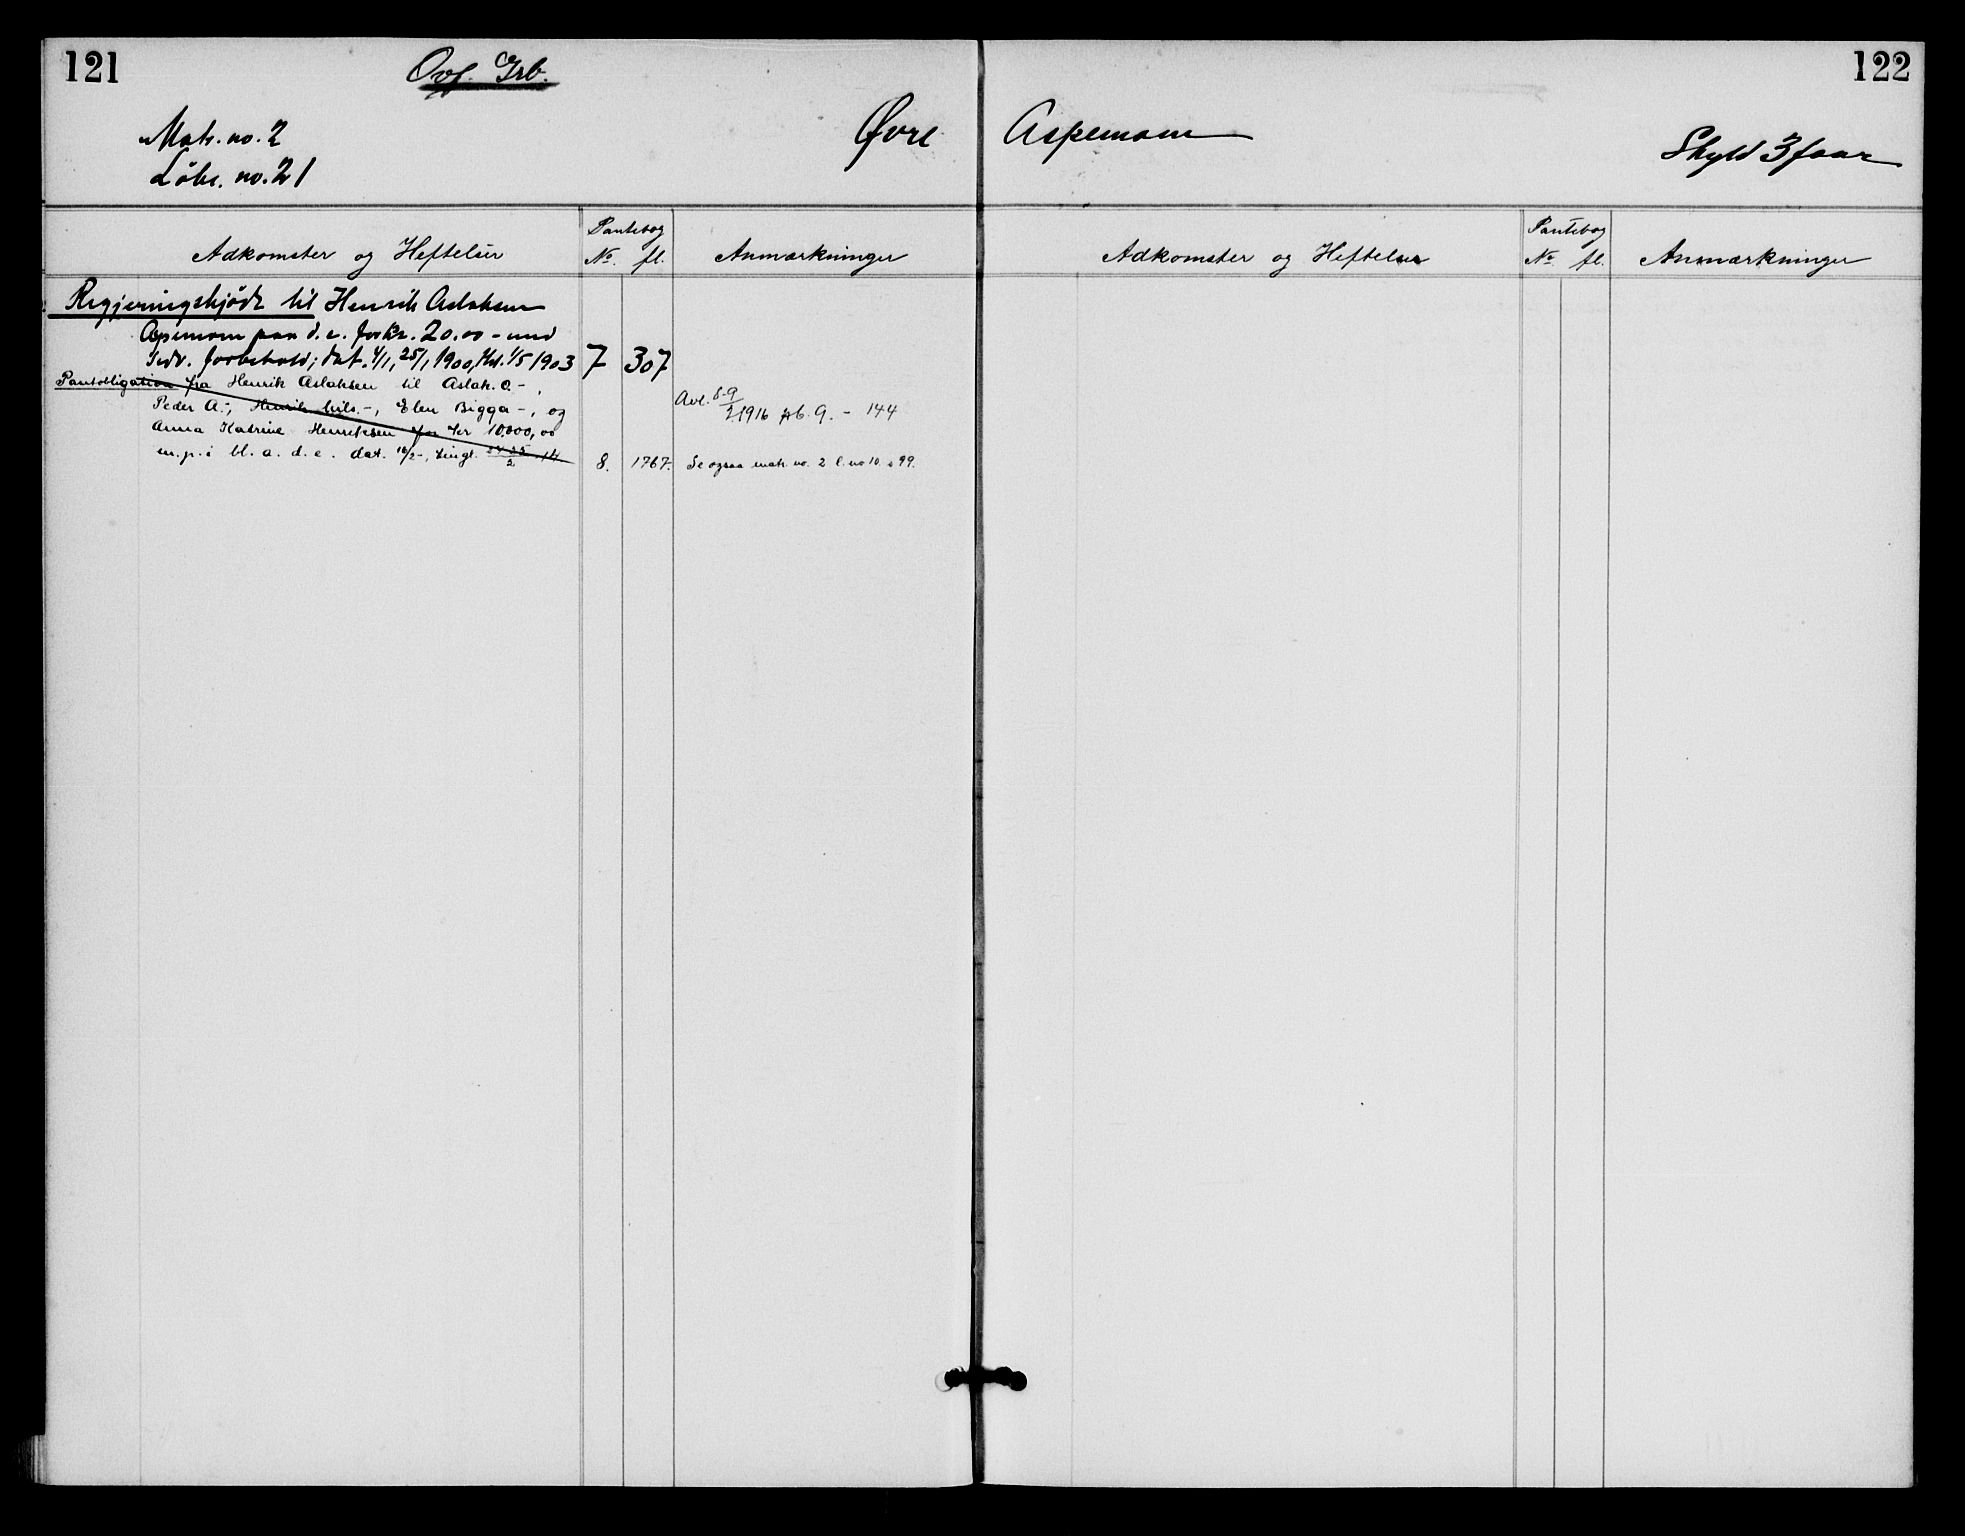 121
Ovf. Grb.
122
Matr. no. 2
Löbe. no. 21
Øvre Aspemom
Skyld 3 føar
Adkomster og Heftelser
Pantebog
No. fl.
Anmærkninger
Adkomster og Heftelser
Pantebog
No. fl.
Anmærkninger
Regjeringsskjöde til Henrik Aslaksen
Aspemom paa d. e. for Kr. 20.00 - med
sedv. forbehold; dat. 4/1, 25/1 1900, thl. 1/5 1903 7 307
Pantobligation fra Henrik Aslaksen til Aslak. O-,
Peder A-, Henrik Nils.-, Elen Bigga-, og
Anna Katrine Henriksen for Kr 10.000,00
m. p. i bl. a. d. e. dat. 16/2-, tingl. 24-25/2-14 8. 1767.
Avl. 8-9/2 1916 pb. 9. - 144
Se ogsaa matr. no. 2 l. no 10. s 99.